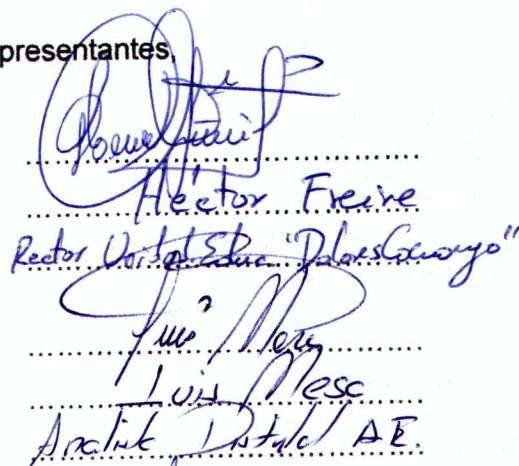 presentantes,
Héctor Freire
Rector Unidad Educ. "Dolores Cacuango"
Luis Mesa
Luis Mesa
Analista Distrital AE.